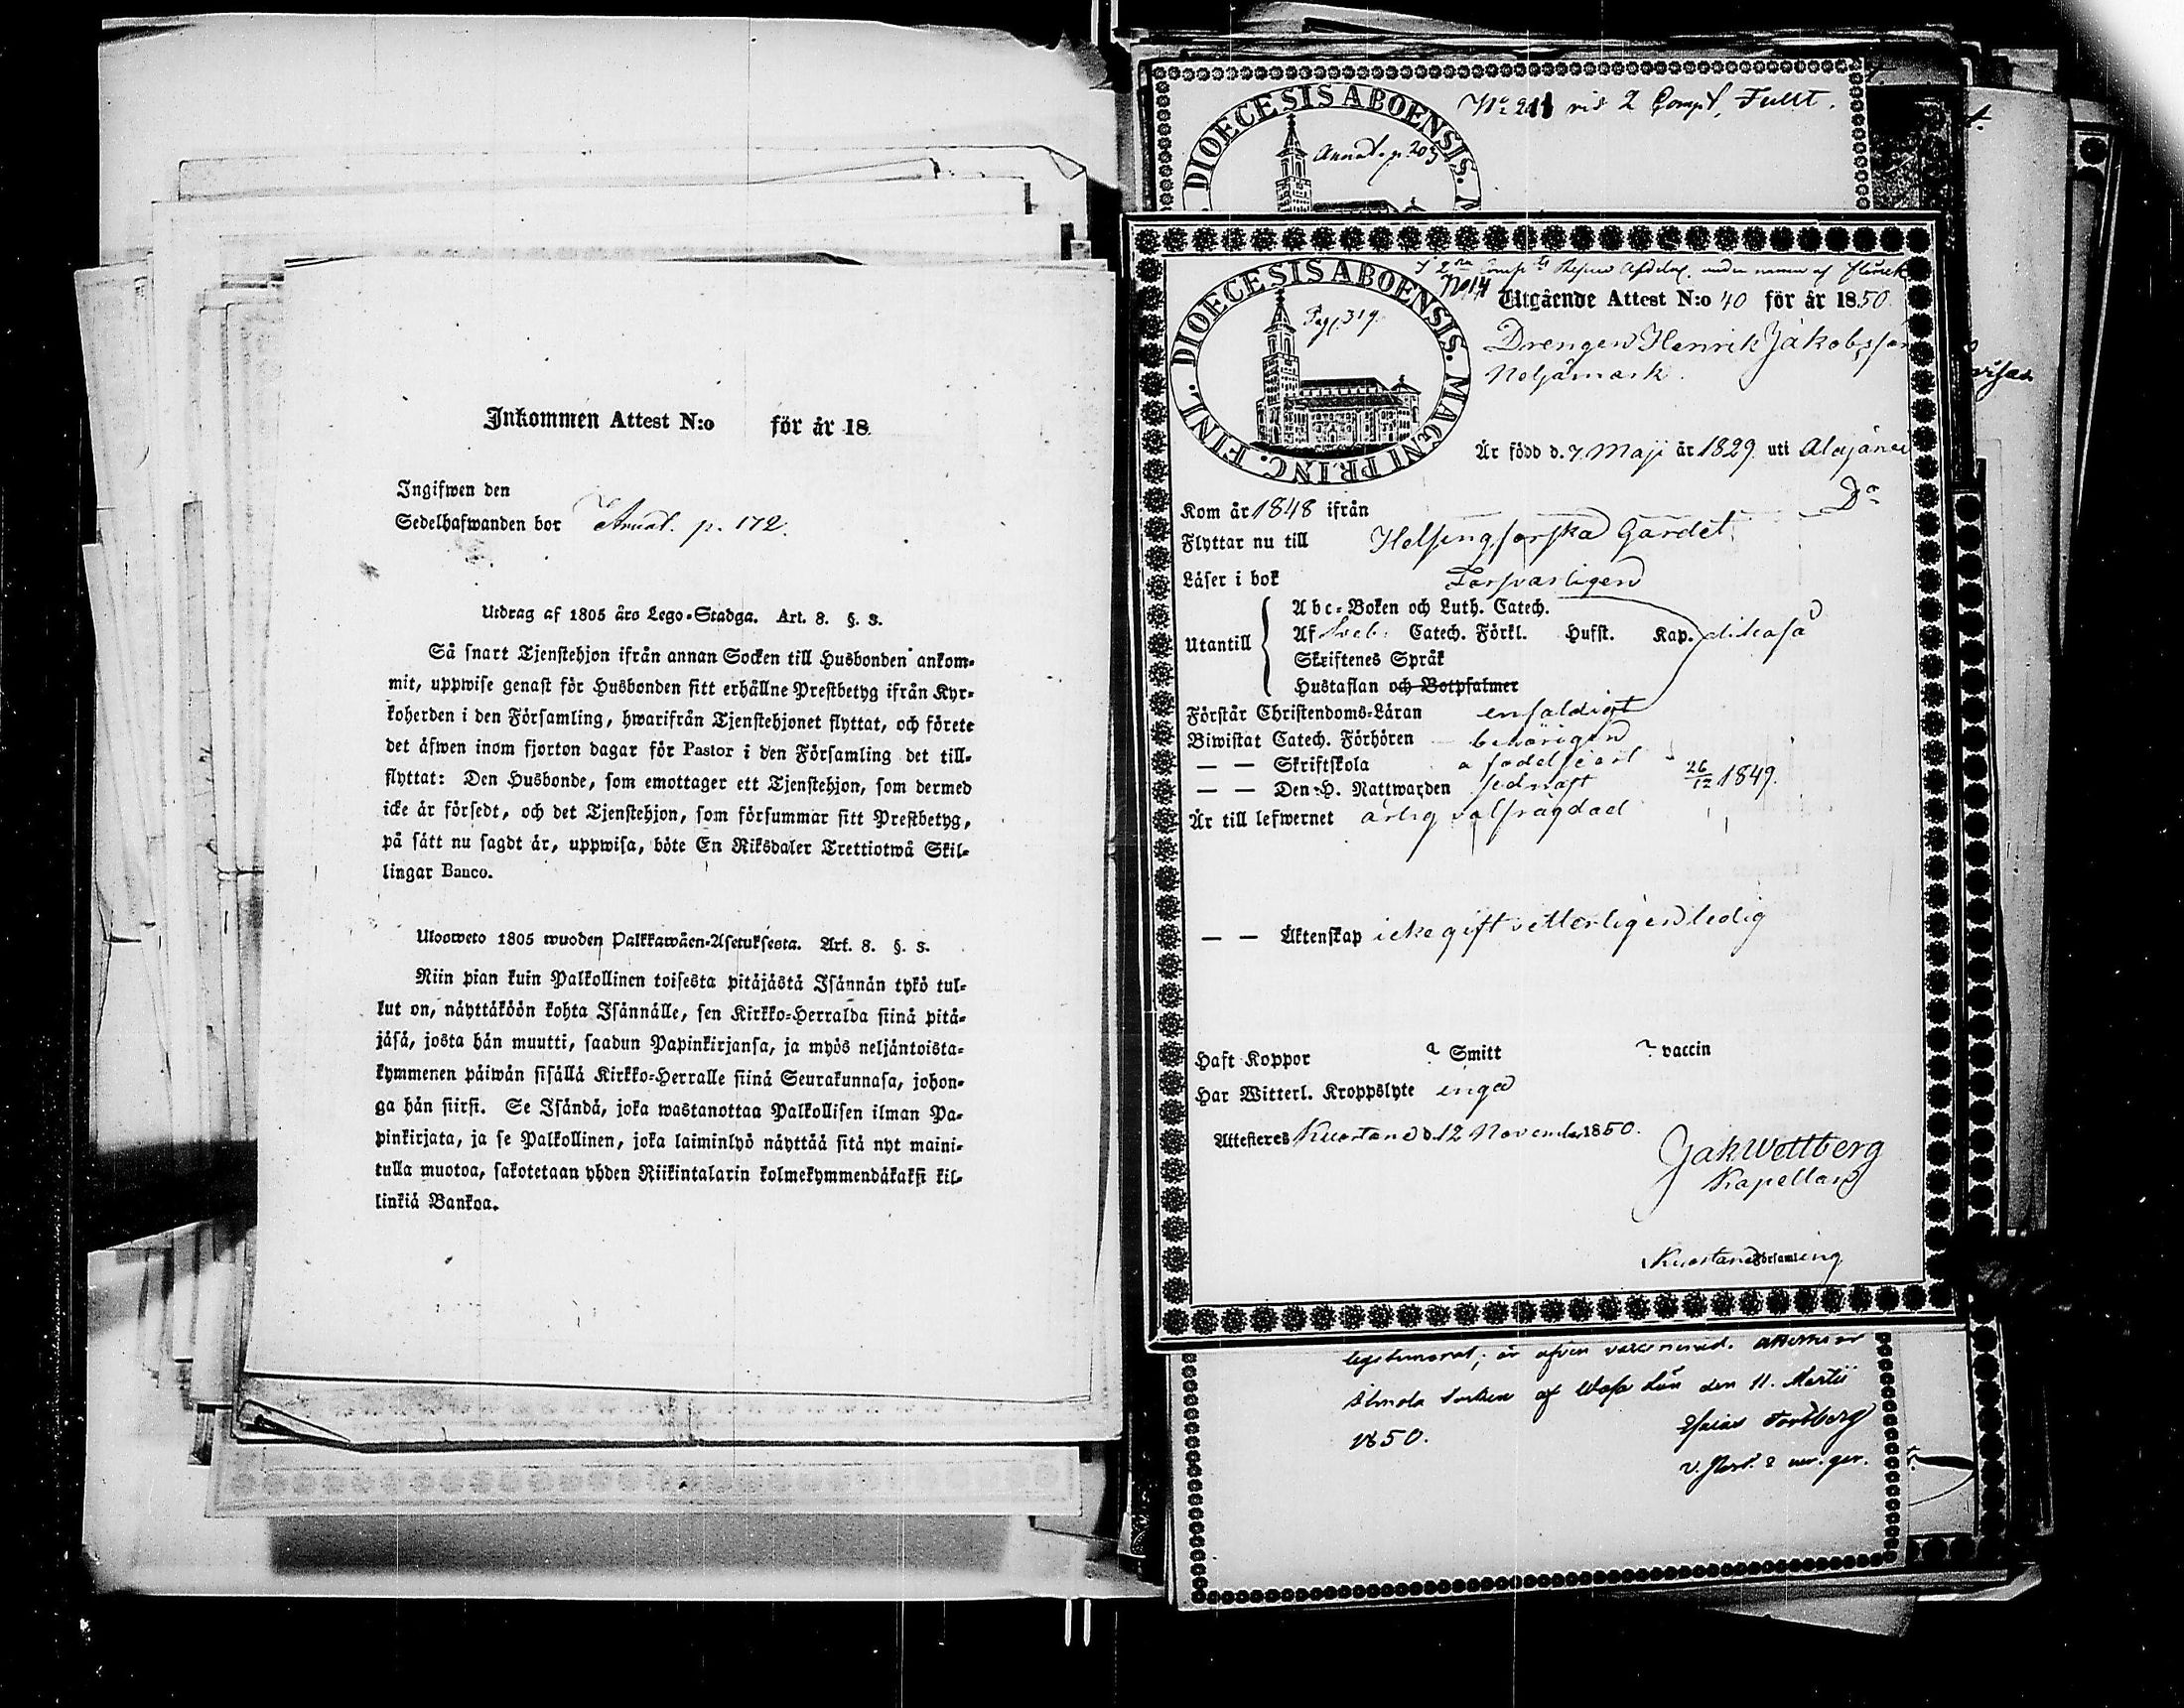 Inkommen Attest N:o för år 18
Ingifwen den
Sedelhafwanden bor Annot. p. 172.
Utdrag af 1805 års Lego-Stadga. Art. 8. §. 3.
Så snart Tjenstehjon ifrån annan Socken till Husbonden ankom-
mit, uppwise genast för Husbonden sitt erhållne Prestbetyg ifrån Kyr-
koherden i den Församling, hwarifrån Tjenstehjonet flyttat, och förete
det äfwen inom fjorton dagar för Pastor i den Församling det till-
flyttat: Den Husbonde, som emottager ett Tjenstehjon, som dermed
icke är försedt, och det Tjenstehjon, som försummar sitt Prestbetyg,
på sätt nu sagdt är, uppwisa, böte En Riksdaler Trettiotwå Skil-
lingar Banco.
Ulosweto 1805 wuoden Palkkawäen-Asetuksesta. Art. 8. §. 3.
Niin pian kuin Palkollinen toisesta pitäjästä Isännän tykö tul-
lut on, näyttäköön kohta Isännälle, sen Kirkko-Herralda siinä pitä-
jäsä, josta hän muutti, saadun Papinkirjansa, ja myös neljäntoista-
kymmenen päiwän sisällä Kirkko-Herralle siinä Seurakunnasa, johon-
ga hän siirsi. Se Isändä, joka wastanottaa Palkollisen ilman Pa-
pinkirjata, ja se Palkollinen, joka laiminlyö näyttää sitä nyt maini-
tulla muotoa, sakotetaan yhden Riikintalarin kolmekymmendäkaksi kil-
linkiä Bankoa.
DIOECESIS ABOENSIS. M
Annot. p. 203
No 211 vid 2 Comp. Fullt.
DIOECESIS ABOENSIS. MAGNI PRINC. FINL.
Pag. 319.
No 14
Utgående Attest N:o 40 för år 1850
Drengen Henrik Jakobsson
Neljämark.
Är född d. 7 Maji år 1829 uti Alajärvi
Kom år 1848 ifrån Do
Flyttar nu till Helsingforska Gardet.
Läser i bok Försvarligen
Utantill
Abc-Boken och Luth. Catech.
Af Sveb: Catech. Förkl. Hufst. Kap. likaså
Skriftenes Språk
Hustaflan och Botpsalmer
Förstår Christendoms-Läran enfaldigt
Biwistat Catech. Förhören behörigen
— — Skriftskola
— — Den H. Nattwarden sednast 26/12 1849.
Är till lefwernet ärlig välfrägdad
— — Äktenskap icke gift vitterligen ledig
Haft Koppor Smitt vaccin
Har Witterl. Kroppslyte inga
Attesteres Kuortane d. 12 November 1850.
Jak Wettberg
Kapellan
Kuortane Församling
legitimerat; är äfven vaccinerad. Attesterar
Ilmola Socken af Wasa Län den 11. Martii
1850.
Esaias Tordberg